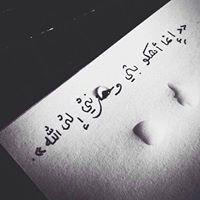 «إنما أشكو بثي وحزني إلى الله»